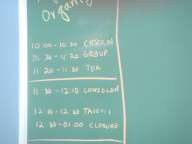 Organi
10 00 - 10 30 CHECK IN
10 30 - 11 20 GROUP
11 20 - 11 30 TEA
11 30 - 12:10
12 10 - 12 30
12 30 - 01 00 CLOSURE